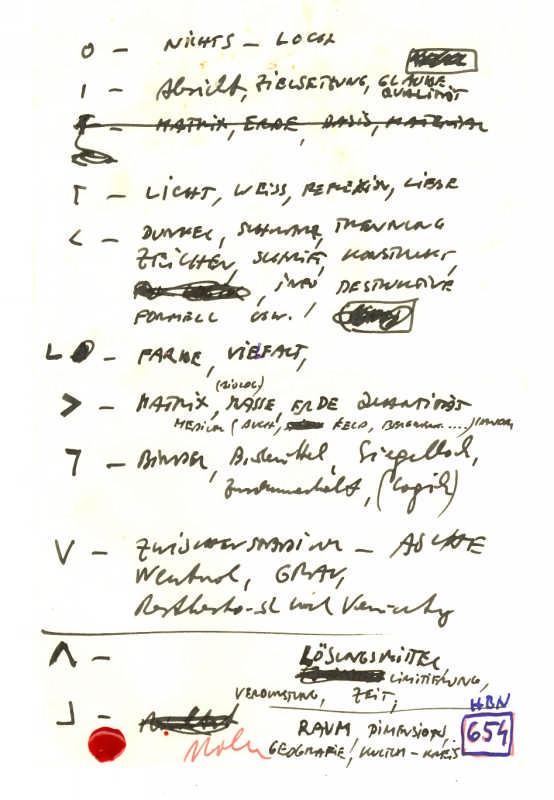 O – NICHTS – LOCH
I – Absicht, ZIELSETZUNG, GLAUBE
QUALITÄT
MATRIX, ERDE, BASIS, MATERIAL
Γ – LICHT, WEISS, REFLEXION, LIEBE
< – DUNKEL, SCHWARZ, TRENNUNG
ZEICHEN, SCHRIFT, KONSTRUKT,
, INFO DESTRUKTIVE
FORMELL USW. /
L – FARBE, VIELFALT,
(BIOLOG)
> – MATRIX, MASSE, ERDE QUANTITÄT
MEDIUM (BUCH, FELD,
7 – BINDER, Bindemittel, Siegellack,
Zusammenhalt, (Logik)
V – ZWISCHENSTADIUM – ASCHE
Neutral, GRAU,
Λ – LÖSUNGSMITTEL
LIMITIERUNG,
VERDUNSTUNG, ZEIT,
⅃ – RAUM, DIMENSION,
GEOGRAFIE, KULTUR – KREIS
HBN
654